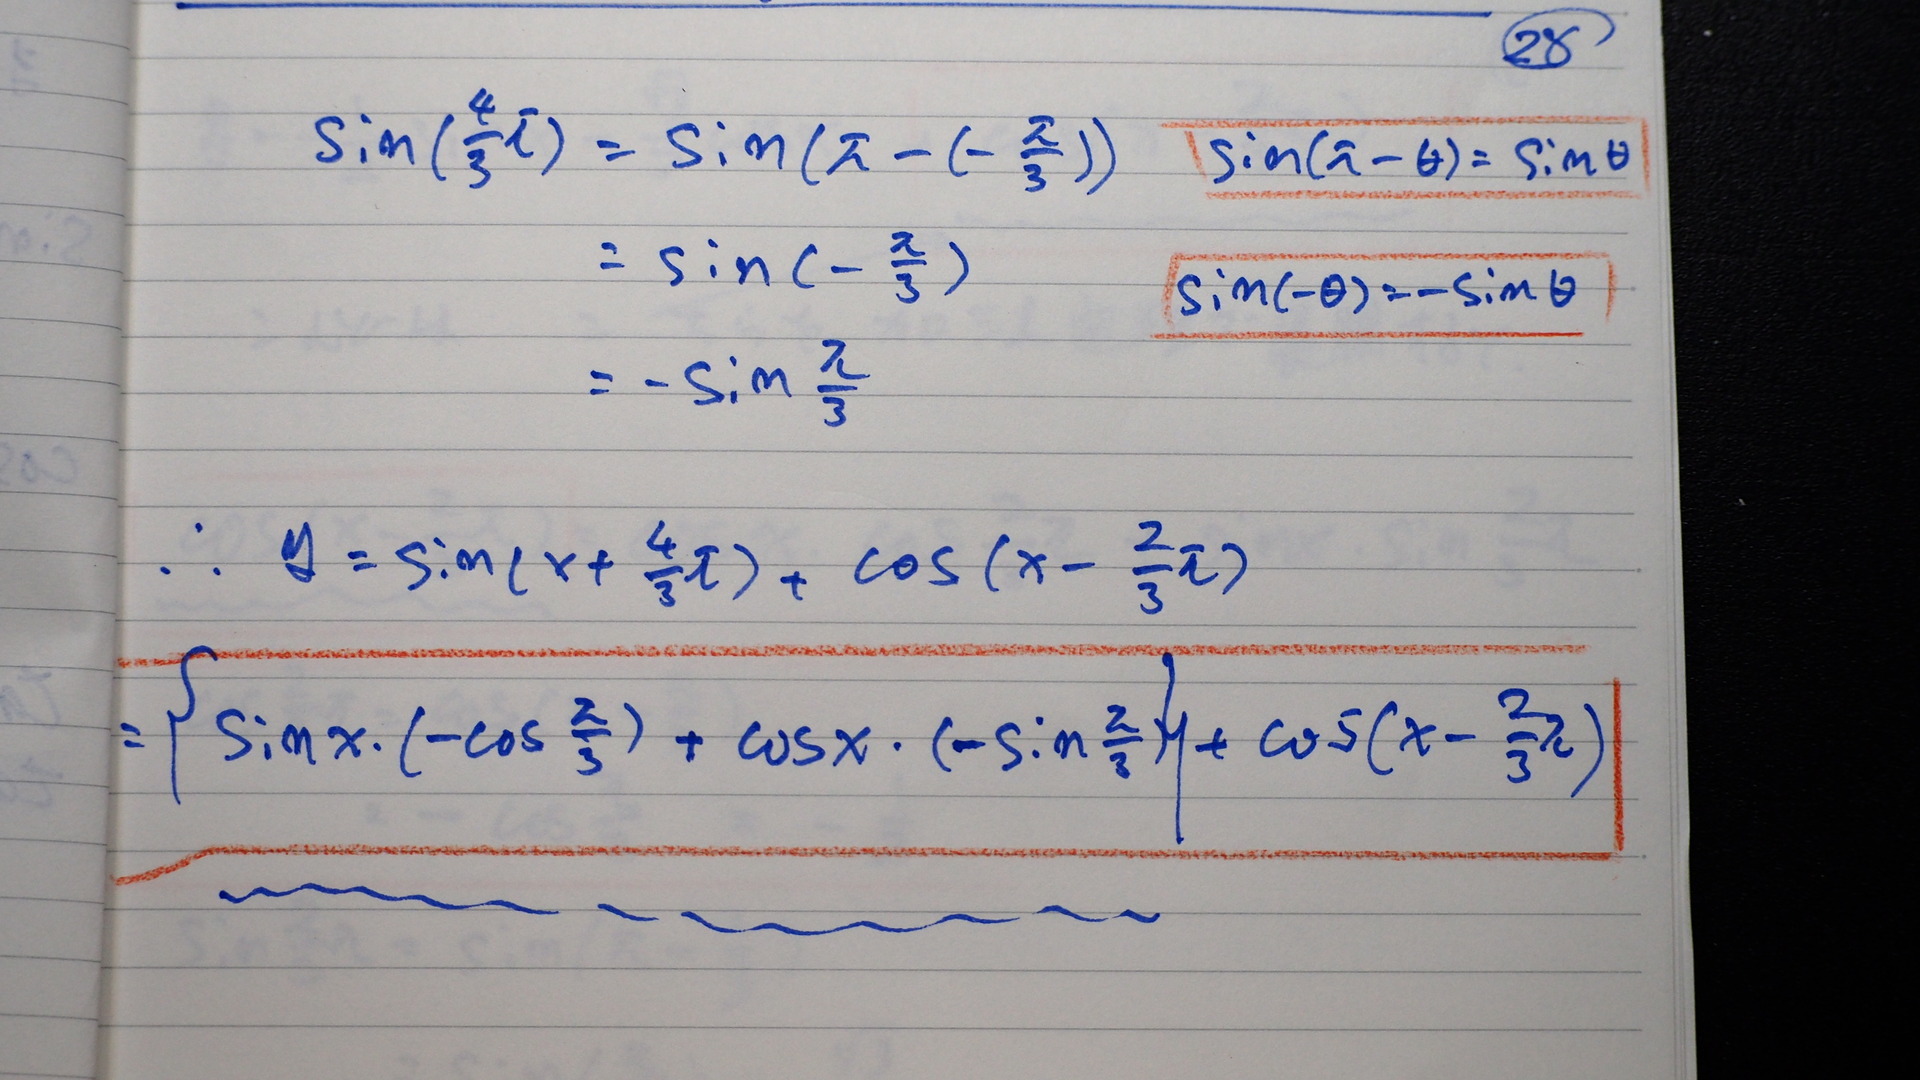 28
sin(4/3 π) = sin(π - (- π/3)) sin(π - θ) = sin θ
= sin(- π/3) sin(-θ) = - sin θ
= - sin π/3
∴ y = sin(x + 4/3 π) + cos(x - 2/3 π)
= { sin x · (-cos π/3) + cos x · (-sin π/3) } + cos(x - 2/3 π)